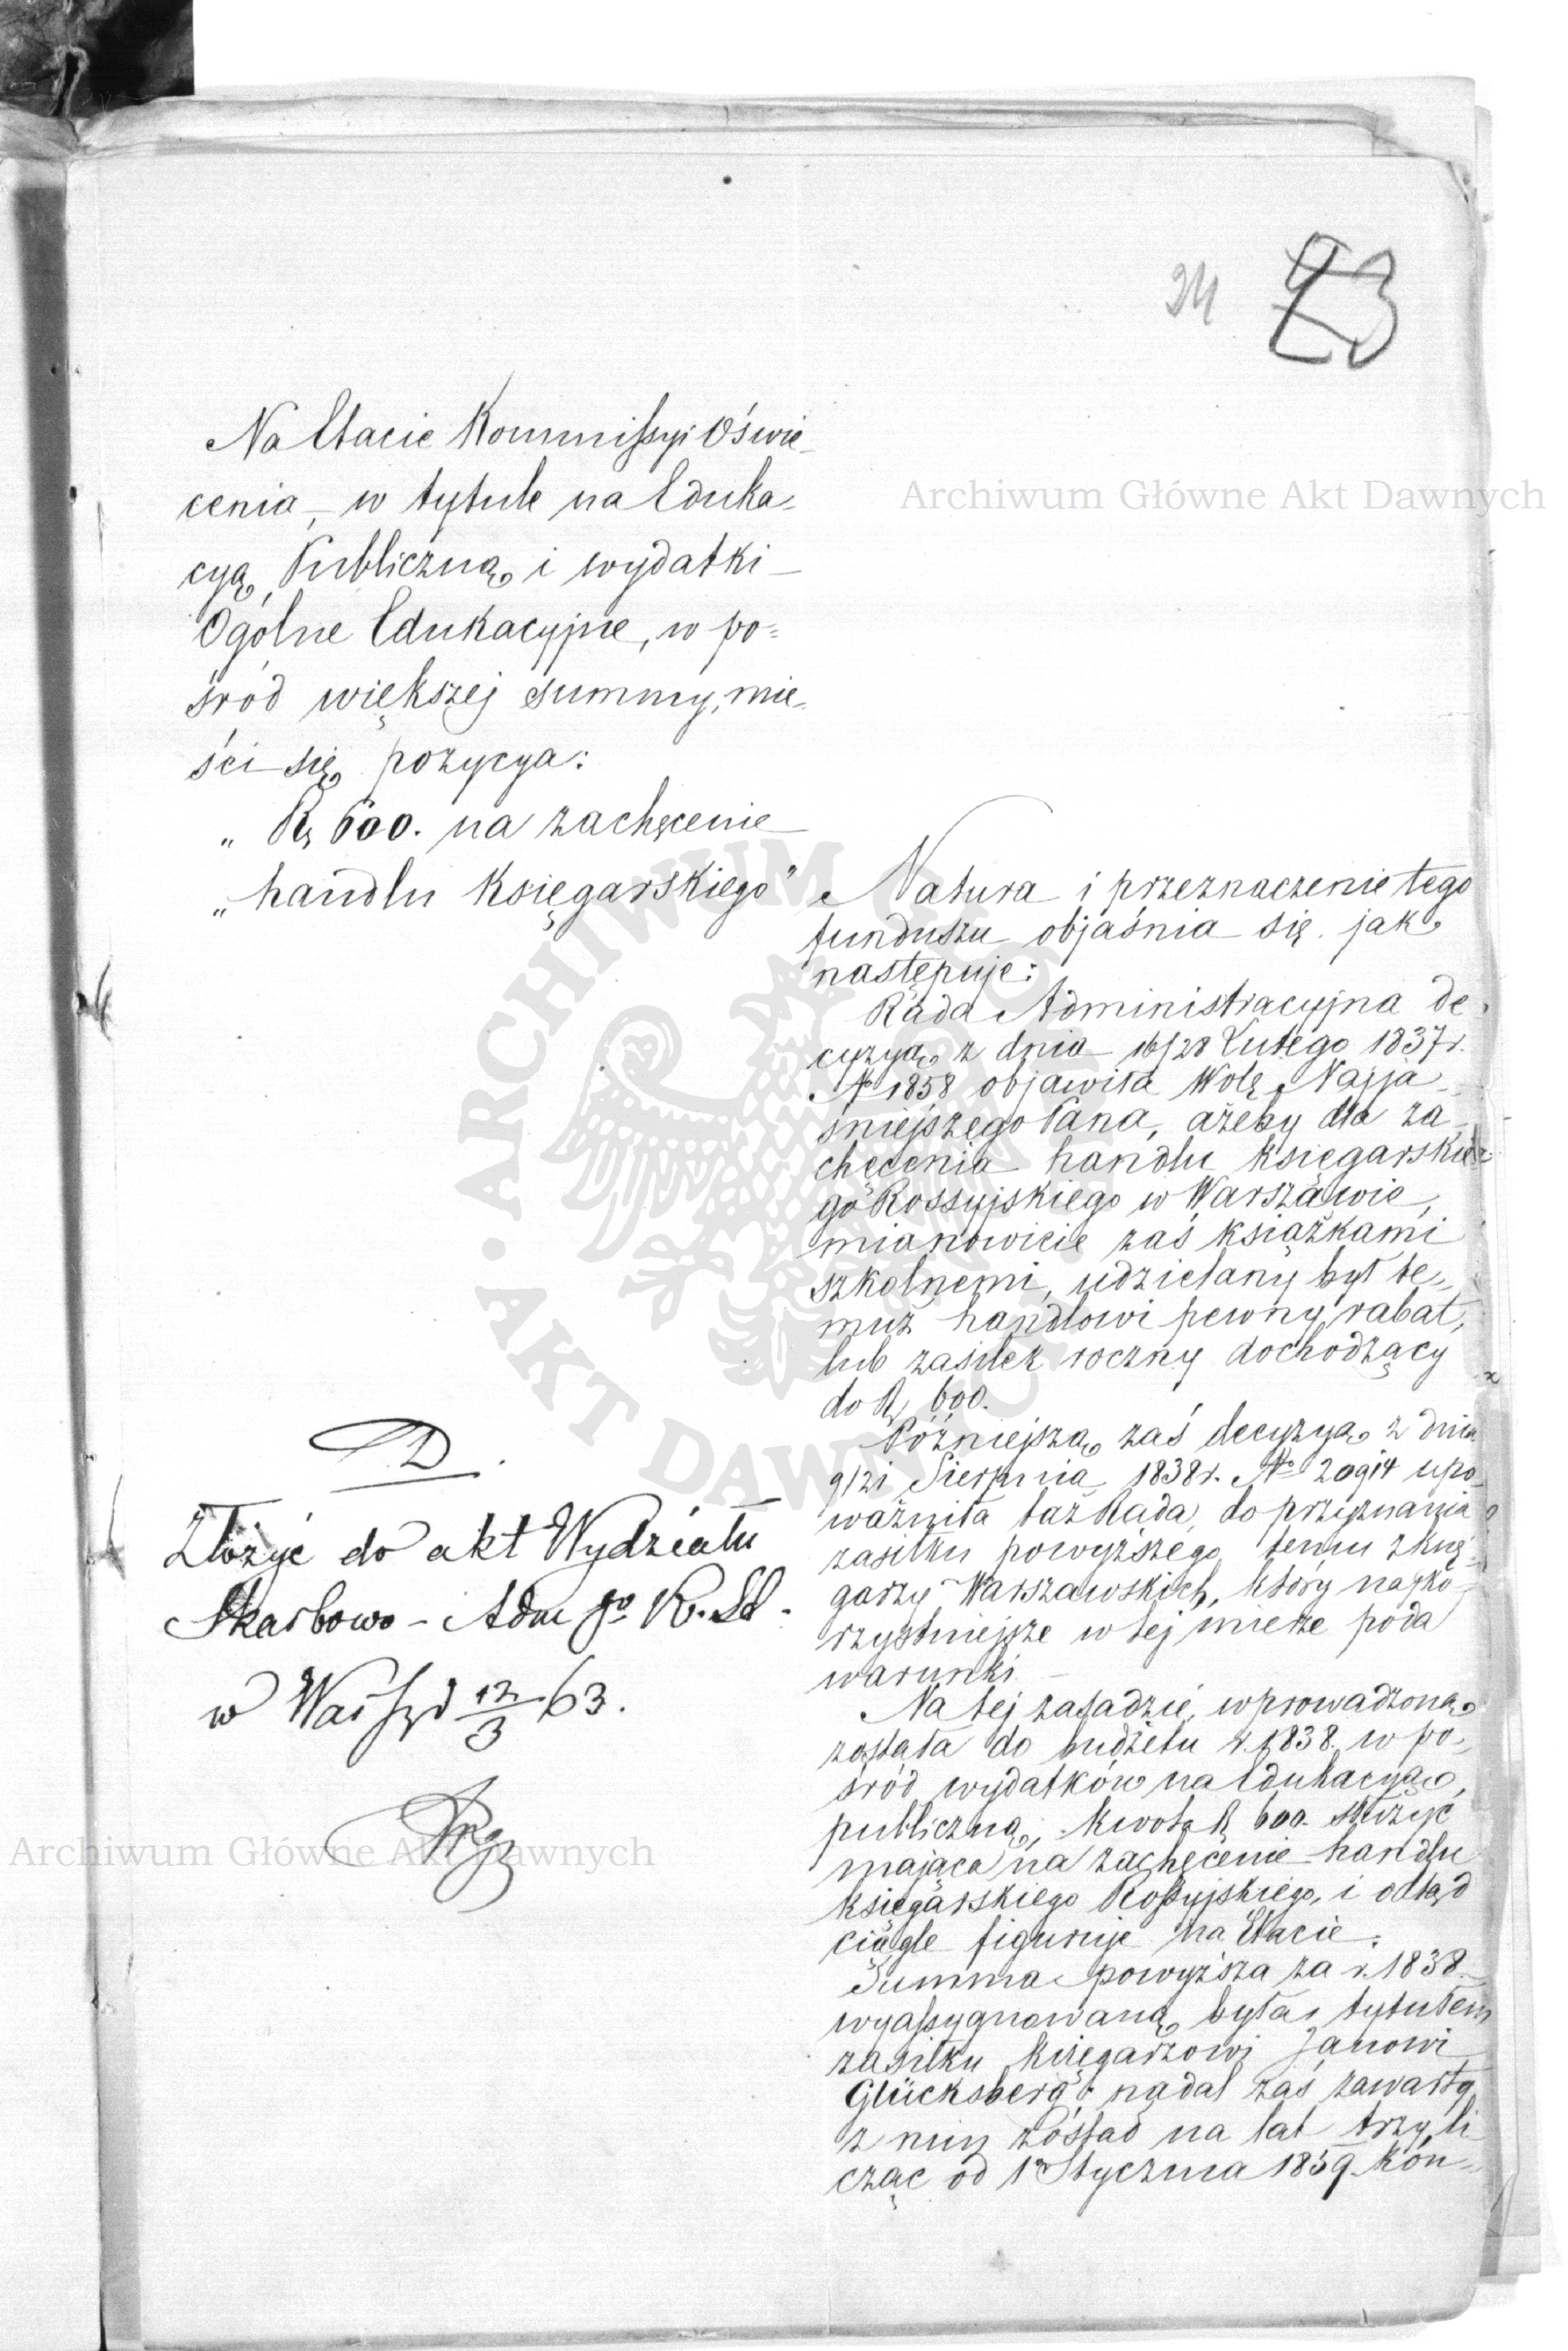 24 23
Na Etacie Kommissyi Oświe-
cenia, w tytule na Eduka-
cyą Publiczną i wydatki
Ogólne Edukacyjne, w po-
śród większej summy, mie-
ści się pozycya:
„ Rs 600. na zachęcenie
„ handlu księgarskiego"
Natura i przeznaczenie tego
funduszu objaśnia się jak
następuje:
Rada Administracyjna de-
cyzyą z dnia 16/28 Lutego 1837 r.
No 1858 objawiła Wolę Najja-
śniejszego Pana, ażeby dla za-
chęcenia handlu księgarskie-
go Rossyjskiego w Warszawie,
mianowicie zaś książkami
szkolnemi, udzielany był te-
muż handlowi pewny rabat,
lub zasiłek roczny dochodzący
do Rs 600.
Późniejszą zaś decyzyą z dnia
9/21 Sierpnia 1838 r. No 20914 upo-
ważniła taż Rada, do przyznania
zasiłku powyższego temu z Księ-
garzy Warszawskich, który najko-
rzystniejsze w tej mierze poda
warunki.
Na tej zasadzie, wprowadzoną
została do budżetu r. 1838. w po-
śród wydatków na Edukacyą
publiczną, kwota Rs 600. służyć
mająca na zachęcenie handlu
księgarskiego Rossyjskiego, i odtąd
ciągle figuruje na Etacie.
Summa powyższa za r. 1838.
wyassygnowaną była tytułem
zasiłku księgarzowi Janowi
Glücksberg; nadal zaś zawarty
z nim został na lat trzy li-
cząc od 1o Stycznia 1839. Kon-
D.
Złożyć do akt Wydziału
Skarbowo-Adm go K. St.
w Warsz d 12/3 63.
Archiwum Główne Akt Dawnych
Archiwum Główne Akt Dawnych
ARCHIWUM GŁÓWNE · AKT DAWNYCH ·